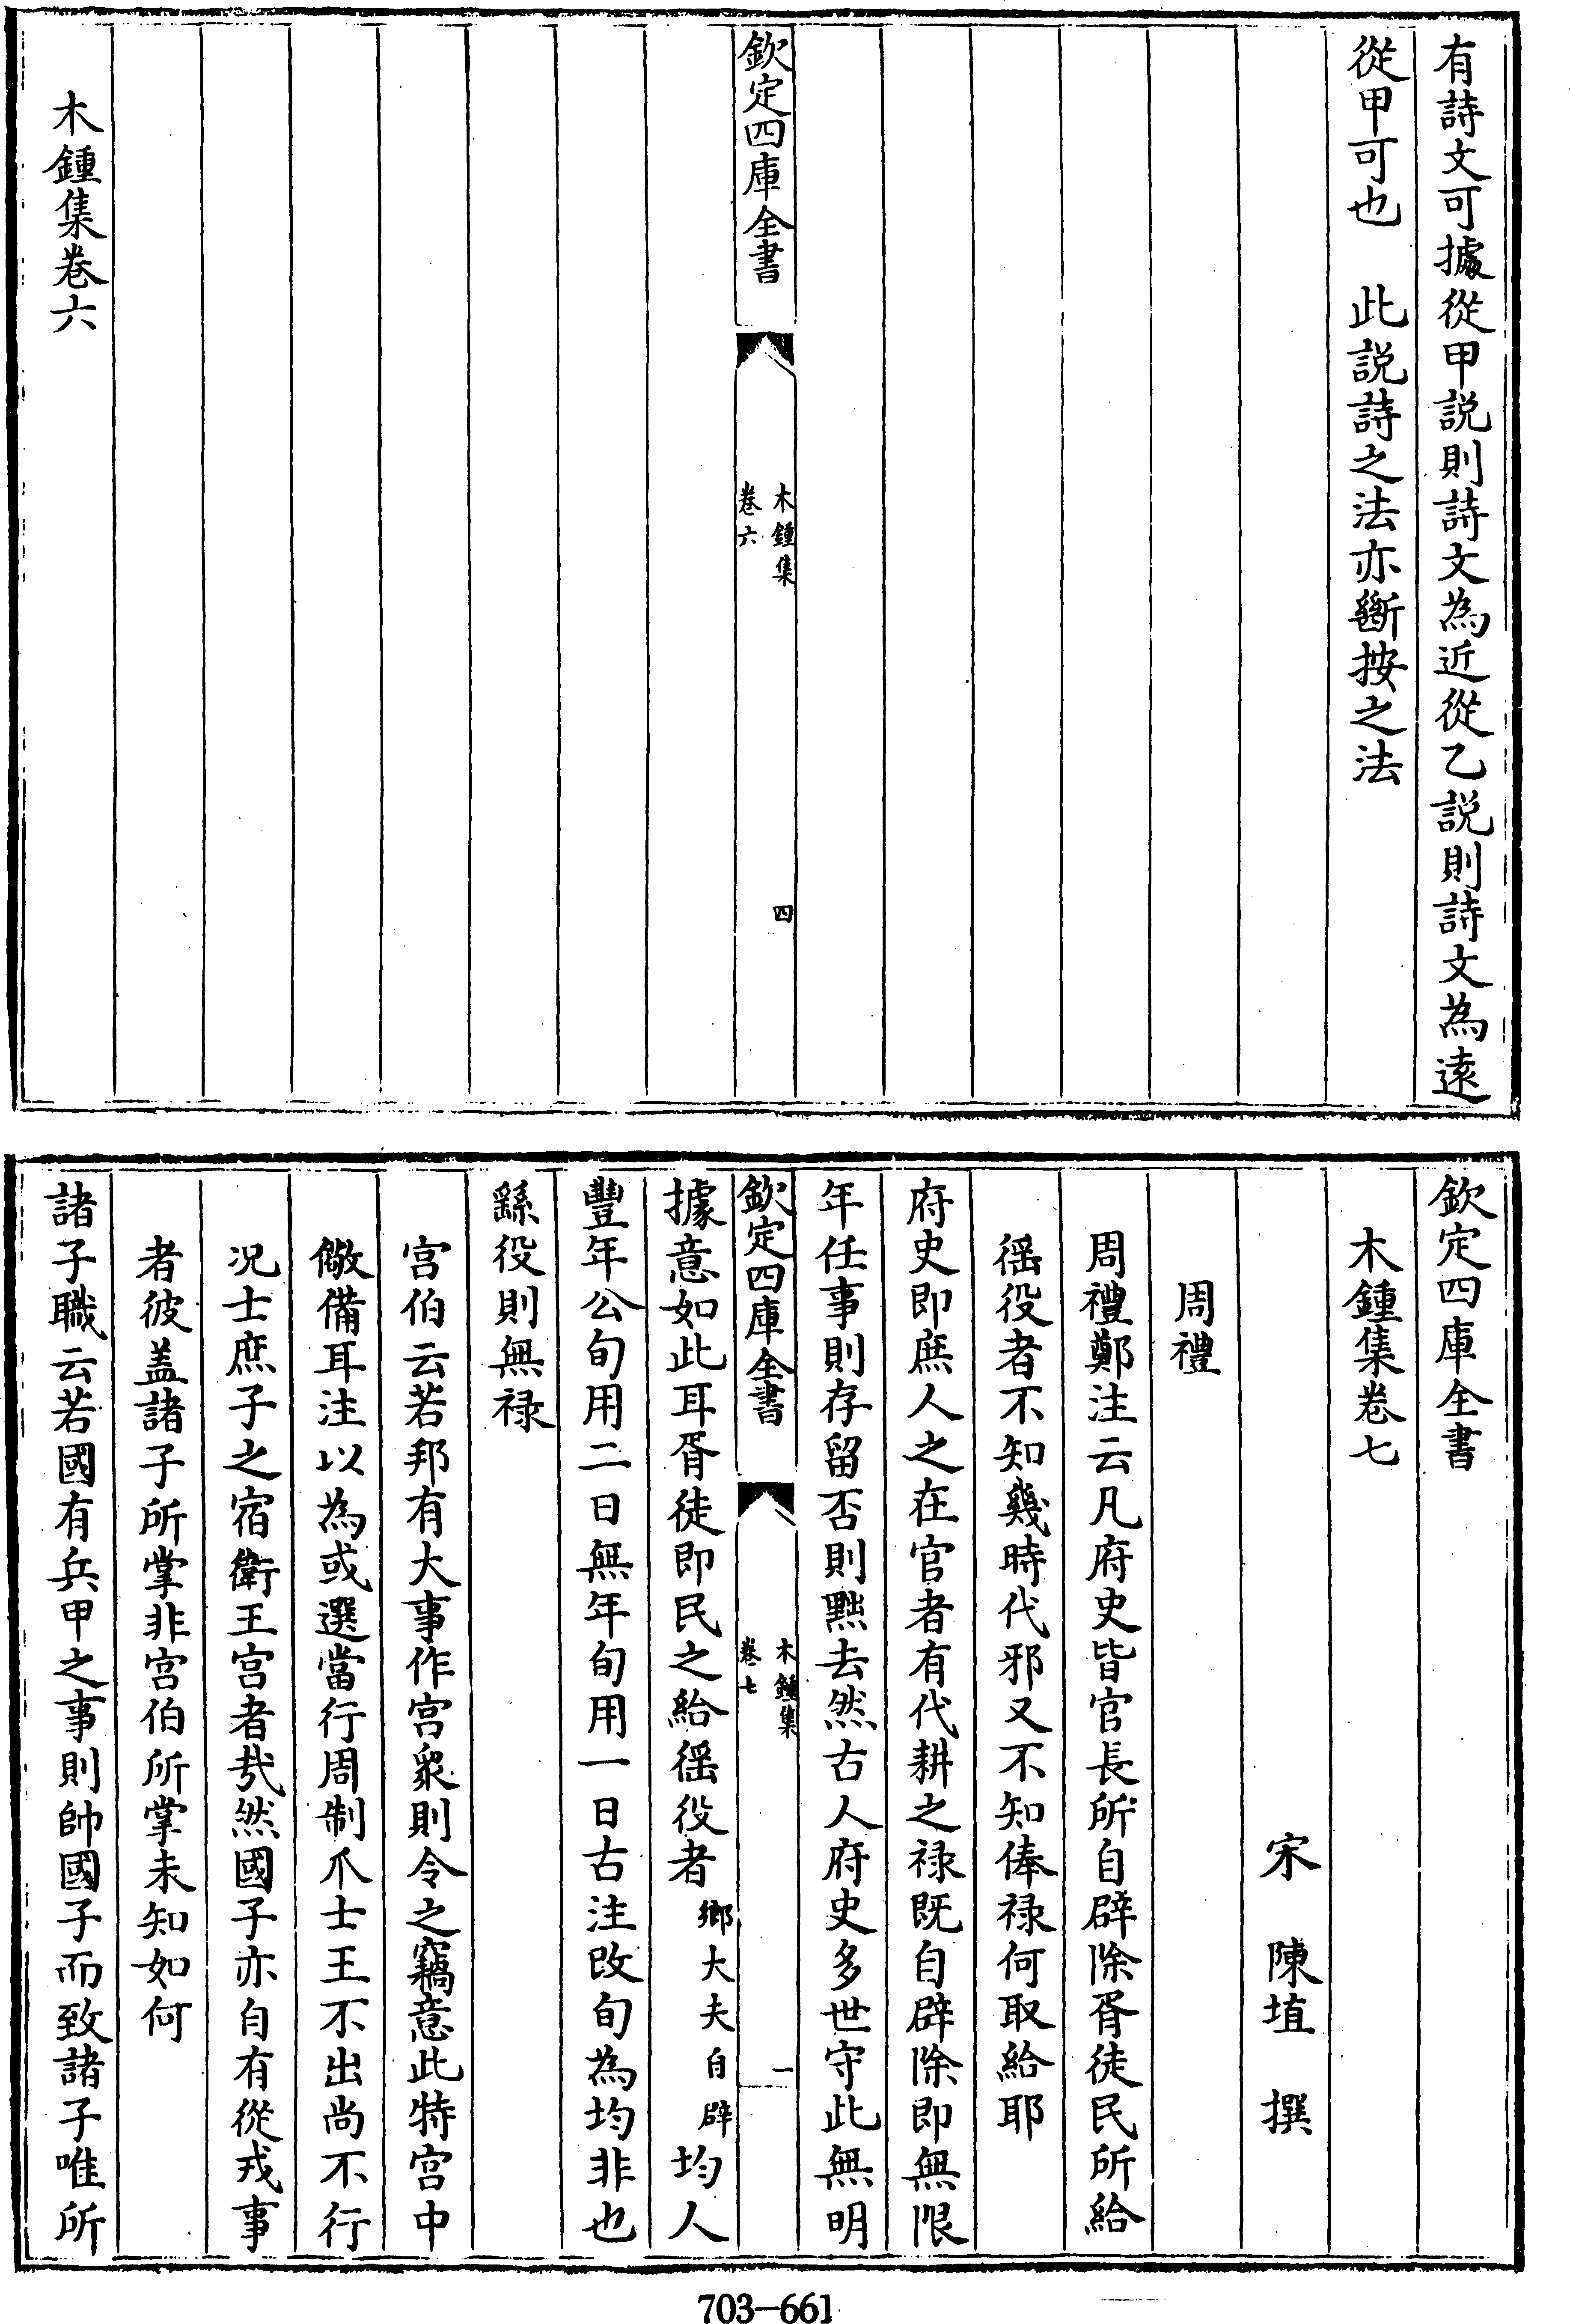 有詩文可據從甲説則詩文為近從乙説則詩文為逺
從甲可也　此説詩之法亦斷按之法
欽定四庫全書
木鍾集
卷六
四
木鍾集卷六
欽定四庫全書
木鍾集卷七
宋　陳埴　撰
周禮
周禮鄭注云凡府史皆官長所自辟除胥徒民所給
徭役者不知幾時代邪又不知俸禄何取給耶
府史即庶人之在官者有代耕之禄既自辟除即無限
年任事則存留否則黜去然古人府史多世守此無明
欽定四庫全書
木鍾集
卷七
一
據意如此耳胥徒即民之給徭役者鄉大夫自辟均人
豐年公旬用二日無年旬用一日古注改旬為均非也
繇役則無禄
宫伯云若邦有大事作宫衆則令之竊意此特宫中
儆備耳注以為或選當行周制爪士王不出尚不行
况士庶子之宿衛王宫者哉然國子亦自有從戎事
者彼盖諸子所掌非宫伯所掌未知如何
諸子職云若國有兵甲之事則帥國子而致諸子唯所
703-661